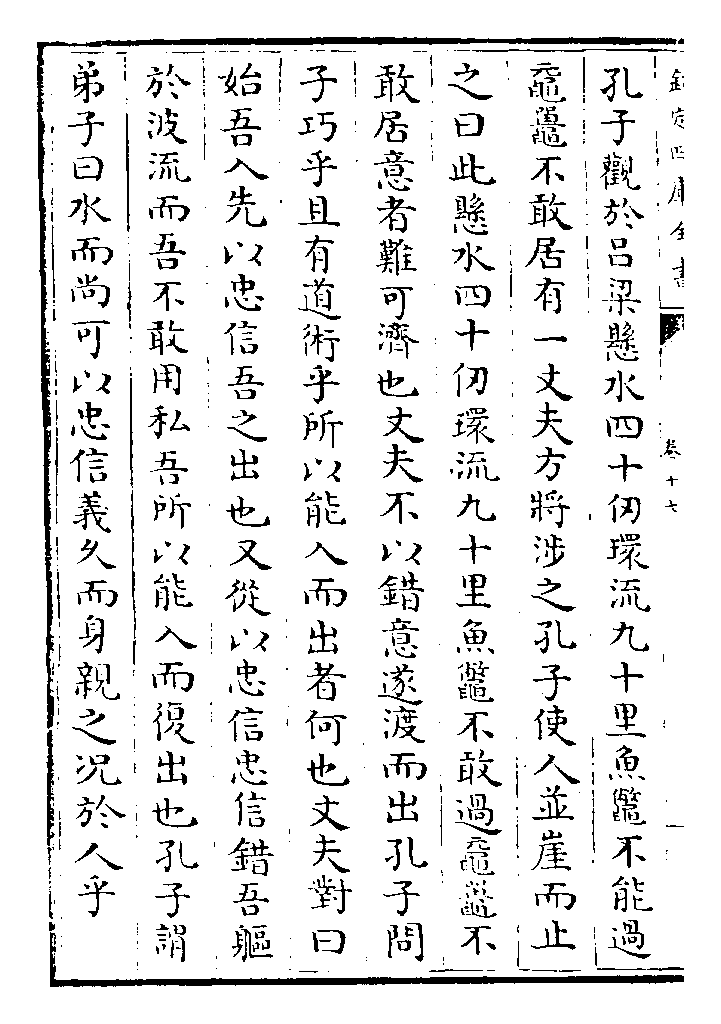 欽定四庫全書
卷十七
孔子觀於呂梁懸水四十仞環流九十里魚鼈不能過
黿鼉不敢居有一丈夫方將涉之孔子使人並崖而止
之曰此懸水四十仞環流九十里魚鼈不敢過黿鼉不
敢居意者難可濟也丈夫不以錯意遂渡而出孔子問
子巧乎且有道術乎所以能入而出者何也丈夫對曰
始吾入先以忠信吾之出也又從以忠信忠信錯吾軀
於波流而吾不敢用私吾所以能入而復出也孔子謂
弟子曰水而尚可以忠信義久而身親之况於人乎